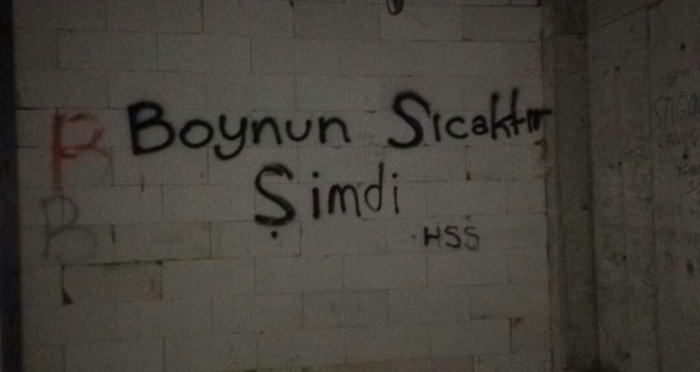 Boynun Sıcaktır
Şimdi
-HSS
B
B